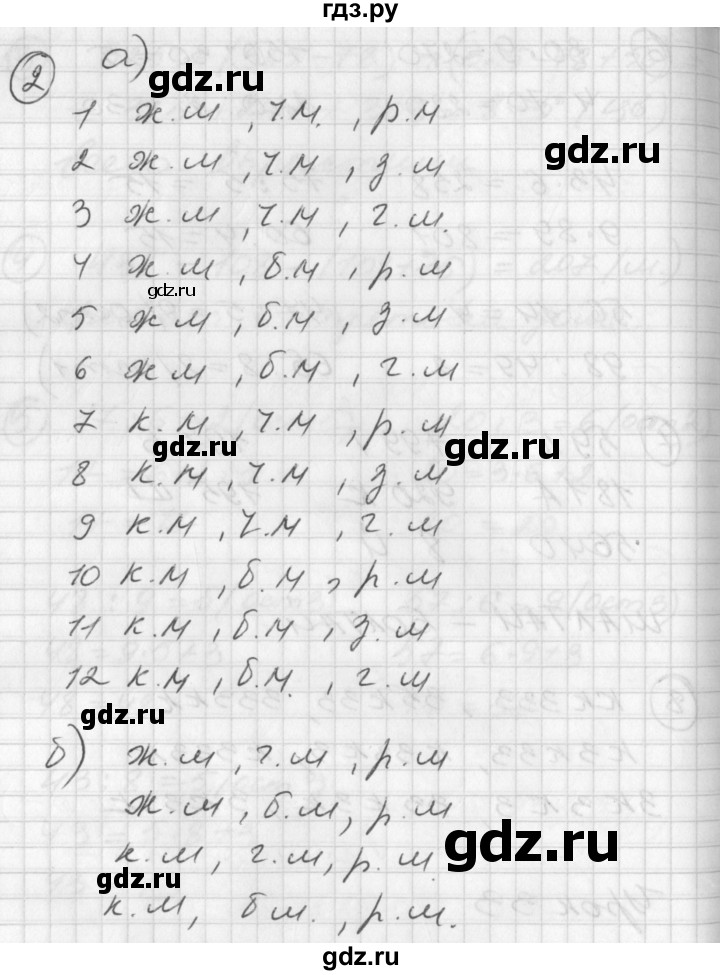 гдз.ру
2 а)
gdz.ru
1 ж.м, ч.м., р.м
gdz.ru
2 ж.м, ч.м, з.м
3 ж.м, ч.м, г.м.
4 ж.м, б.м, р.м
gdz.ru
5 ж м, б.м, з.м
6 ж м, б.м, г.м
7 к.м, ч.м, р.м
gdz.ru gdz.ru
8 к.м, ч.м, з.м
9 к.м, ч.м, г.м
10 к.м, б.м, р.м
gdz.ru
11 к.м, б.м, з.м
gdz.ru
12 к.м, б.м., г.м
gdz.ru
б) ж.м, г.м, р.м
ж.м, б.м, р.м
gdz.ru
к.м, г.м, р.м.
gdz.ru
к.м, б м., р.м.
gdz.ru